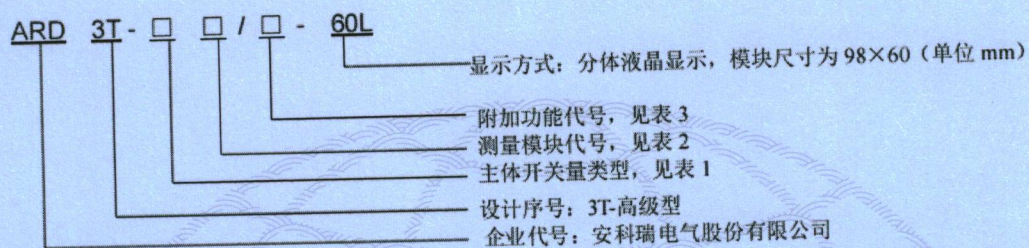 ARD 3T - □ □ / □ - 60L
显示方式：分体液晶显示，模块尺寸为 98×60（单位 mm）
附加功能代号，见表 3
测量模块代号，见表 2
主体开关量类型，见表 1
设计序号：3T-高级型
企业代号：安科瑞电气股份有限公司